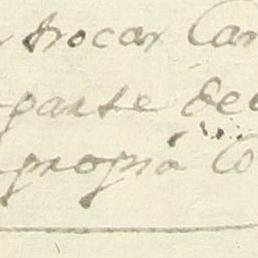 trocar Car
parte de
propia Co